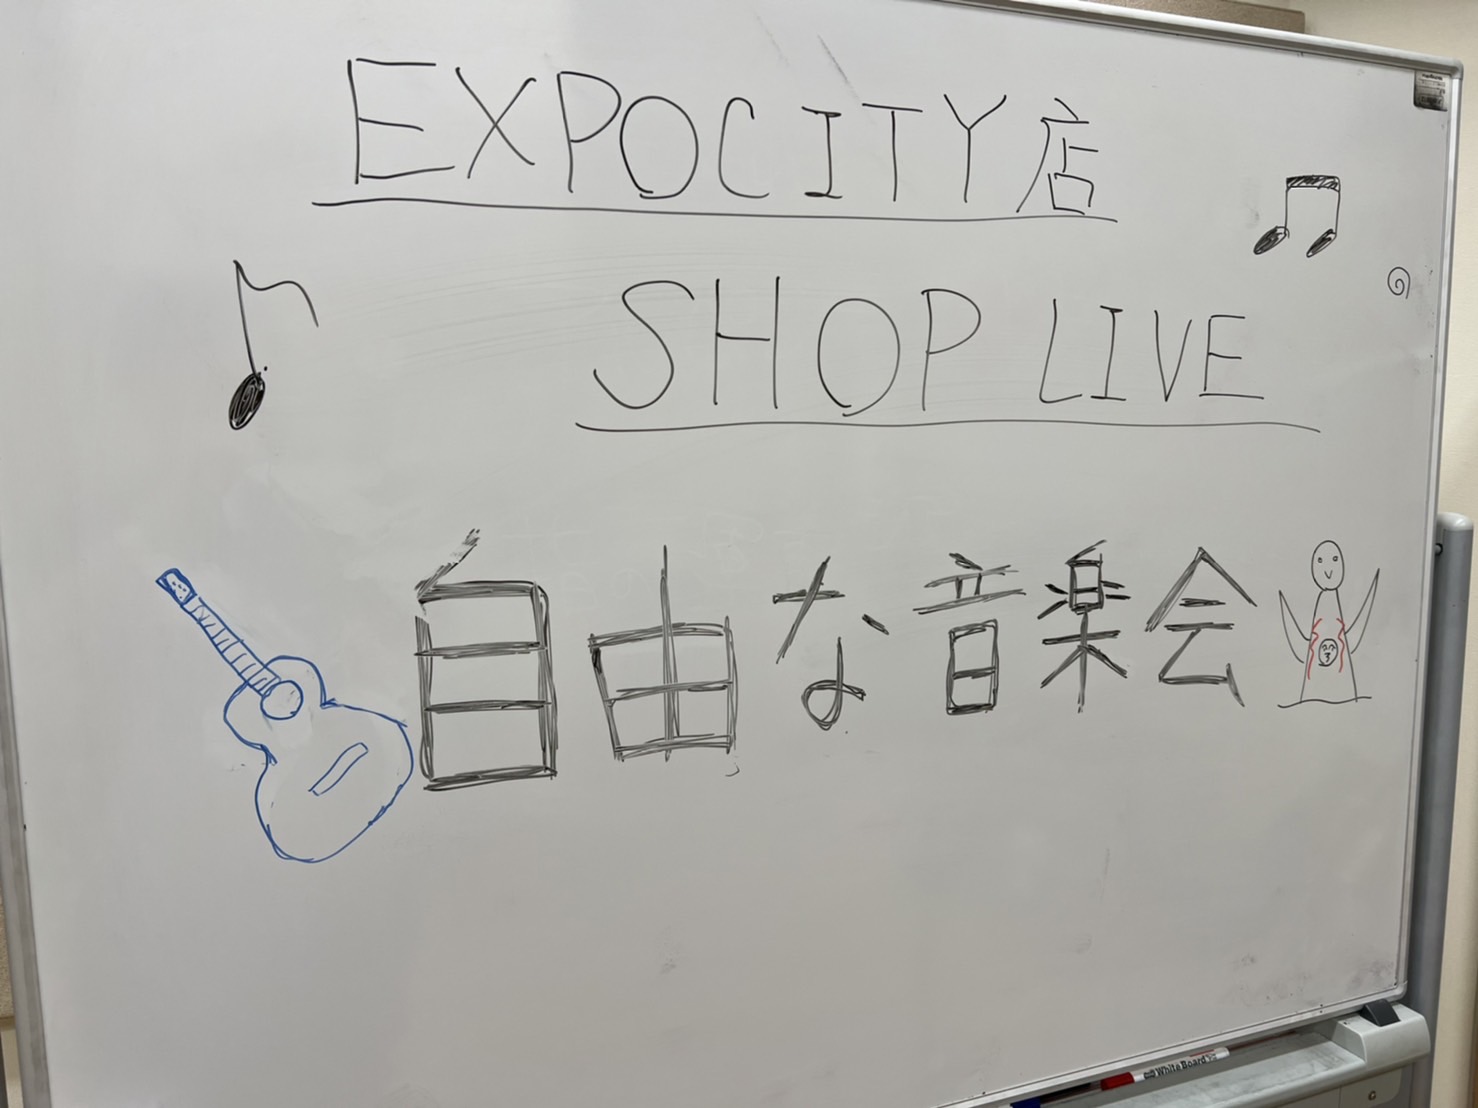 EXPOCITY店
SHOP LIVE
自由な音楽会
WhiteBoard